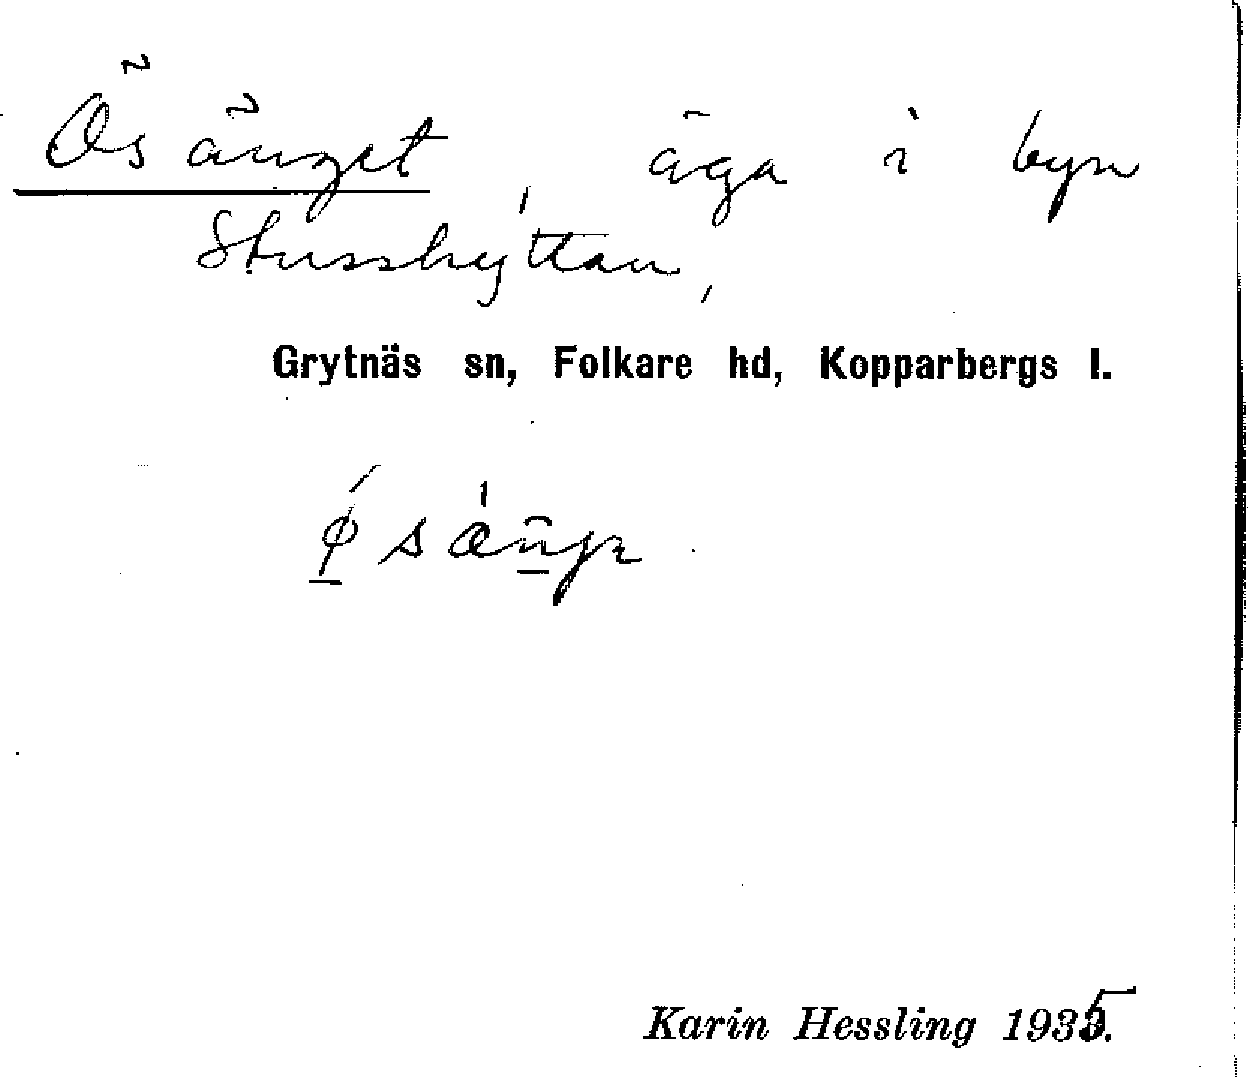 Ösänget, äga i byn
Stusshyttan,
Grytnäs sn, Folkare hd, Kopparbergs l.
Karin Hessling 1935.